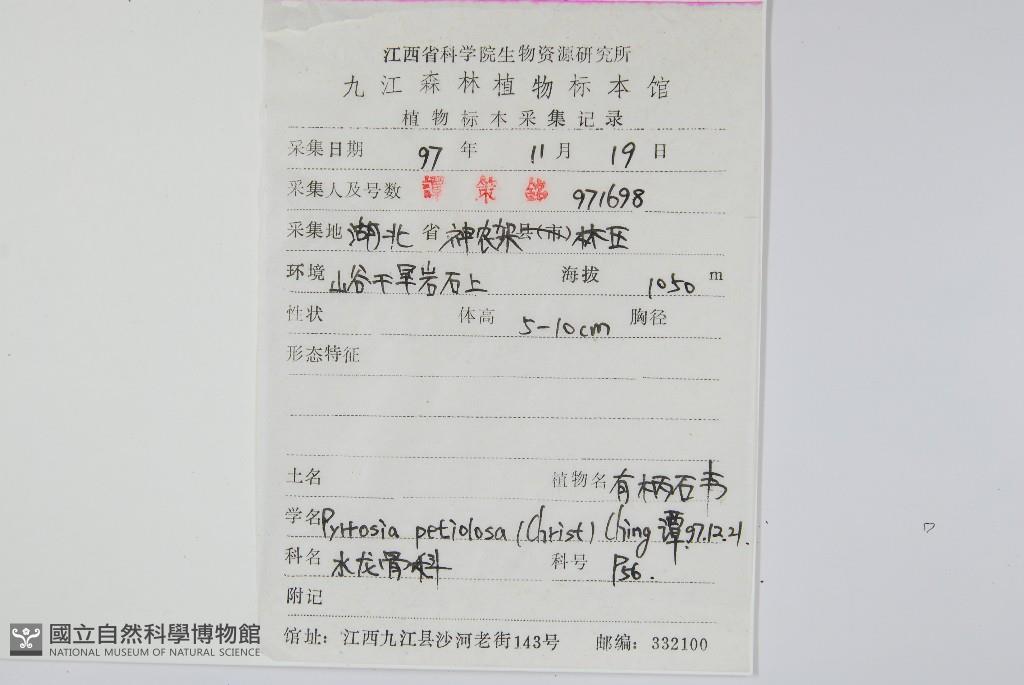 江西省科学院生物资源研究所
九江森林植物标本馆
植物标本采集记录
采集日期 97 年 11 月 19 日
采集人及号数 譚策銘 971698
采集地 湖北 省 神农架县(市) 林区
环境 山谷干旱岩石上 海拔 1050 m
性状 体高 5-10cm 胸径
形态特征
土名 植物名 有柄石韦
学名 Pyrrosia petiolosa (Christ) Ching 谭 97.12.21.
科名 水龙骨科 科号 P56.
附记
馆址: 江西九江县沙河老街143号 邮编: 332100
國立自然科學博物館
NATIONAL MUSEUM OF NATURAL SCIENCE